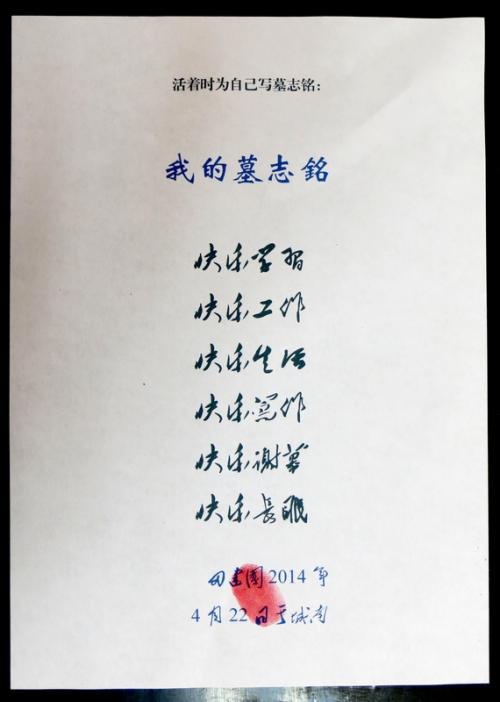 活着时为自己写墓志铭：
我的墓志銘
快乐学習
快乐工作
快乐生活
快乐寫作
快乐谢幕
快乐長眠
田建國2014年
4月22日于城南